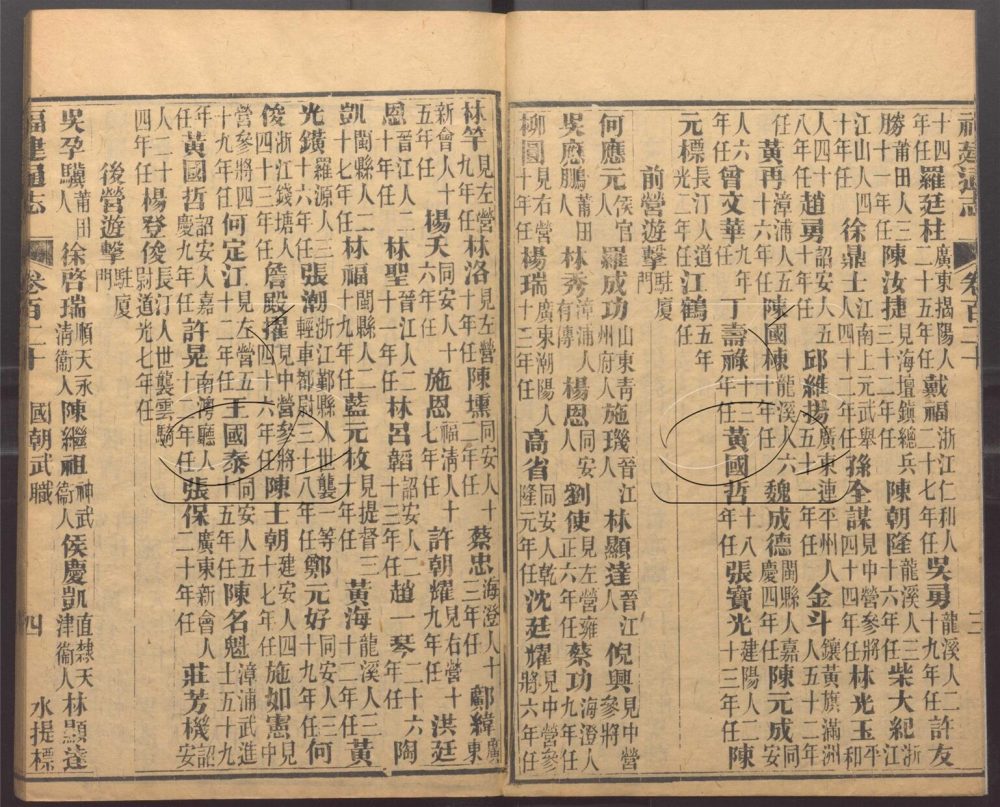 福建通志 卷百二十 三
十四年任 羅廷柱 廣東揭陽人二十五年任 戴福 浙江仁和人二十七年任 吳勇 龍溪人二十九年任 許友
勝 莆田人三十一年任 陳汝捷 見海壇鎮總兵三十二年任 陳朝隆 龍溪人三十六年任 柴大紀 浙江
江山人四十年任 徐鼎士 江南上元武舉人四十二年任 孫全謀 見中營參將四十四年任 林光玉 平和
人四十八年任 趙勇 詔安人五十年任 邱維揚 廣東連平州人五十一年任 金斗 鑲黃旗滿洲人五十二年
任 黃再 漳浦人五十六年任 陳國棟 龍溪人六十年任 魏成德 閩縣人嘉慶四年任 陳元成 同安
人六年任 曾文華 九年任 丁壽祿 十三年任 黃國哲 十八年任 張寶光 建陽人二十三年任 陳
元標 長汀人道光二年任 江鶴 五年任
前營遊擊 駐厦門
何應元 侯官人 羅成功 山東青州府人 施璣 晉江人 林顯達 晉江人 倪興 見中營參將
吳應鵬 莆田人 林秀 漳浦人有傳 楊恩 同安人 劉使 見左營雍正六年任 蔡功 海澄人九年任
柳圓 見右營十年任 楊瑞 廣東潮陽人十三年任 高省 同安人乾隆元年任 沈廷耀 見中營參將六年任
林竿 見左營九年任 林洛 見左營十年任 陳壎 同安人十二年任 蔡忠 海澄人十三年任 鄺緯 廣東
新會人十五年任 楊天 同安人十六年任 施恩 福清人十七年任 許朝耀 見右營十九年任 洪廷
恩 晉江人二十年任 林聖 晉江人二十一年任 林呂韜 詔安人二十三年任 趙一琴 二十六年任 陶
凱 閩縣人二十七年任 林福 閩縣人二十九年任 藍元枚 見提督三十年任 黃海 龍溪人三十二年任 黃
光鐄 羅源人三十六年任 張潮 浙江鄞縣人世襲一等輕車都尉三十八年任 鄭元好 同安人三十九年任 何
俊 浙江錢塘人四十三年任 詹殿擢 見中營參將四十六年任 陳士朝 建安人四十七年任 施如憲 見中
營參將四十九年任 何定江 見左營五十二年任 王國泰 同安人五十五年任 陳名魁 漳浦武進士五十九
年任 黃國哲 詔安人嘉慶九年任 許晃 南澳廳人十二年任 張保 廣東新會人二十年任 莊芳機 詔安
人二十四年任 楊登俊 長汀人世襲雲騎尉道光七年任
後營遊擊 駐厦門
吳孕驥 莆田人 徐啓瑞 順天永清衞人 陳繼祖 神武衞人 侯慶凱 直隷天津衞人 林顯達
福建通志 卷百二十 國朝武職 四 水提標